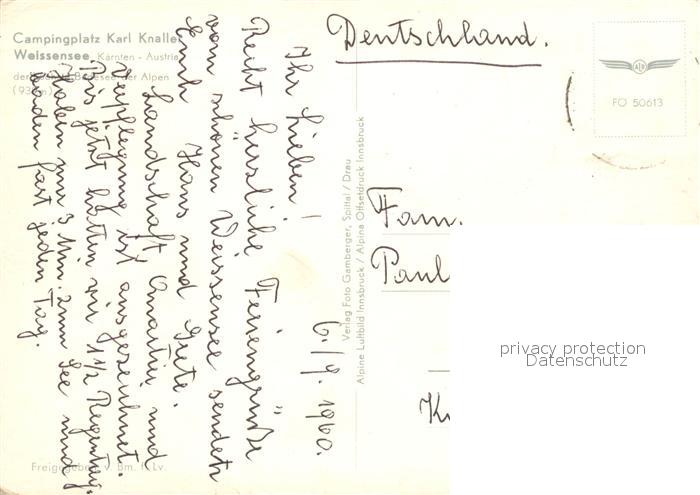 Campingplatz Karl Knaller
Weissensee, Kärnten - Austria
der Badesee der Alpen
(93
Freigegeben v. Bm. f. Lv.
Ihr Lieben!
6./9. 1960.
Recht herzliche Feriengrüße
vom schönen Weissensee sendet
Euch Hans und Grete.
Landschaft, Quartier und
Verpflegung ist ausgezeichnet.
Bis jetzt hatten wir 1 1/2 Regentag.
Haben nur 3 Min. zum See und
baden fast jeden Tag.
Verlag Foto Gamberger, Spittal / Drau
Alpine Luftbild Innsbruck / Alpina Offsetdruck Innsbruck
Deutschland.
FO 50613
Fam.
Paul
privacy protection
Datenschutz